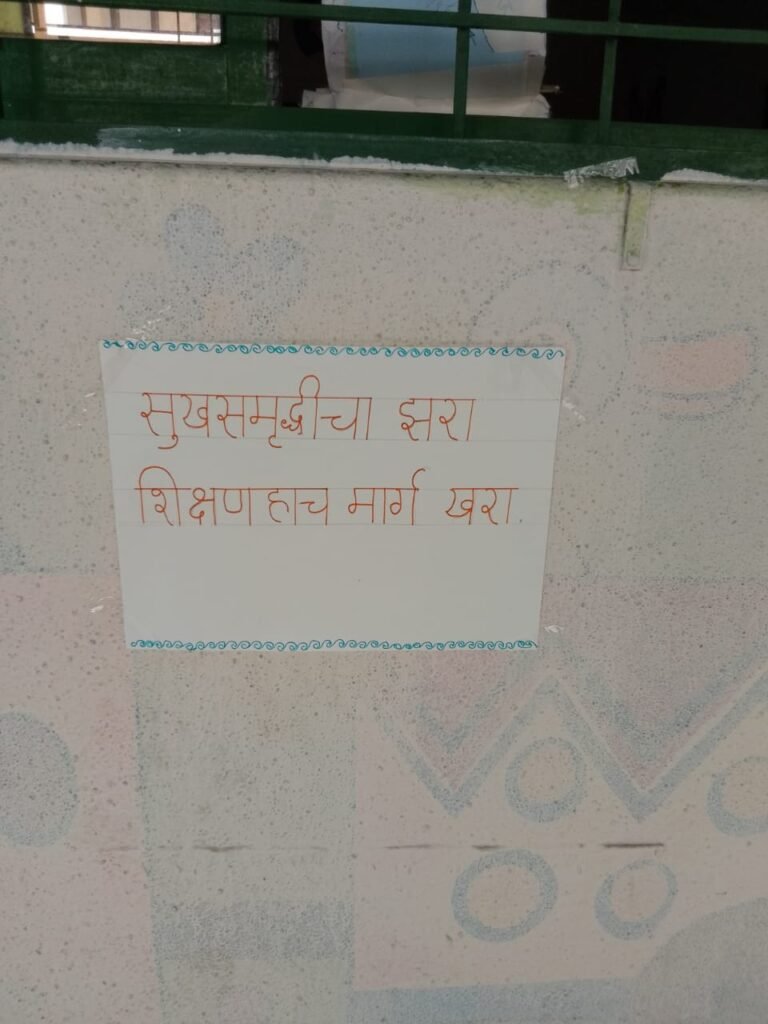 सुखसमृद्धीचा झरा
शिक्षण हाच मार्ग खरा.